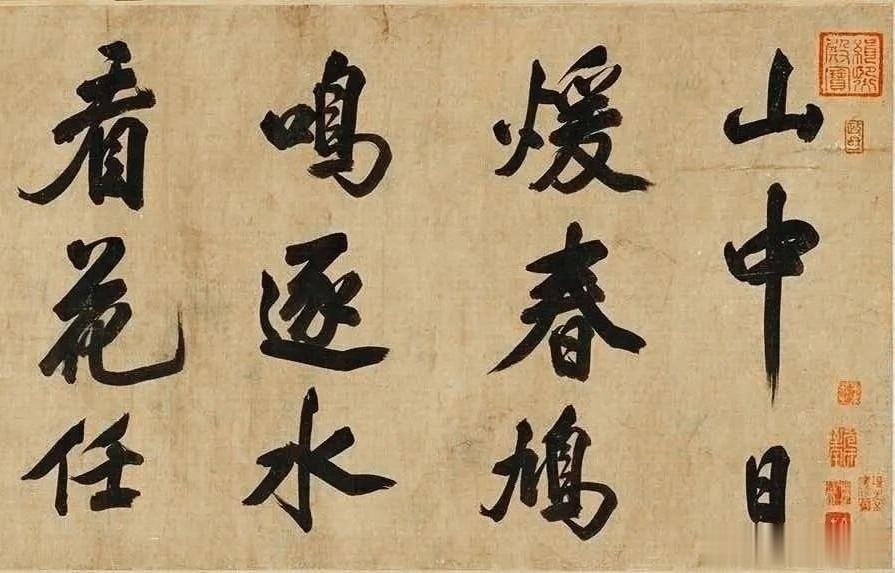 山中日
煖春鳩
鳴逐水
看花任